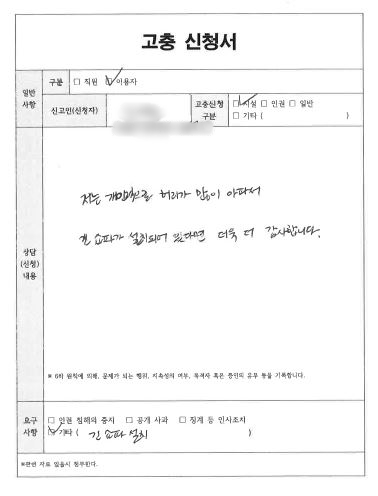 고충 신청서
일반 사항
구분 □ 직원 ☑ 이용자
신고인(신청자)
고충신청 구분
☑ 시설 □ 인권 □ 일반
□ 기타 ( )
상담 (신청) 내용
저는 개인적으로 허리가 많이 아파서
긴 쇼파가 설치되어 있다면 더욱 더 감사합니다.
* 6하 원칙에 의해, 문제가 되는 행위, 지속성의 여부, 목격자 혹은 증인의 유무 등을 기록합니다.
요구 사항
□ 인권 침해의 중지 □ 공개 사과 □ 징계 등 인사조치
☑ 기타 ( 긴 쇼파 설치 )
※관련 자료 있을시 첨부한다.